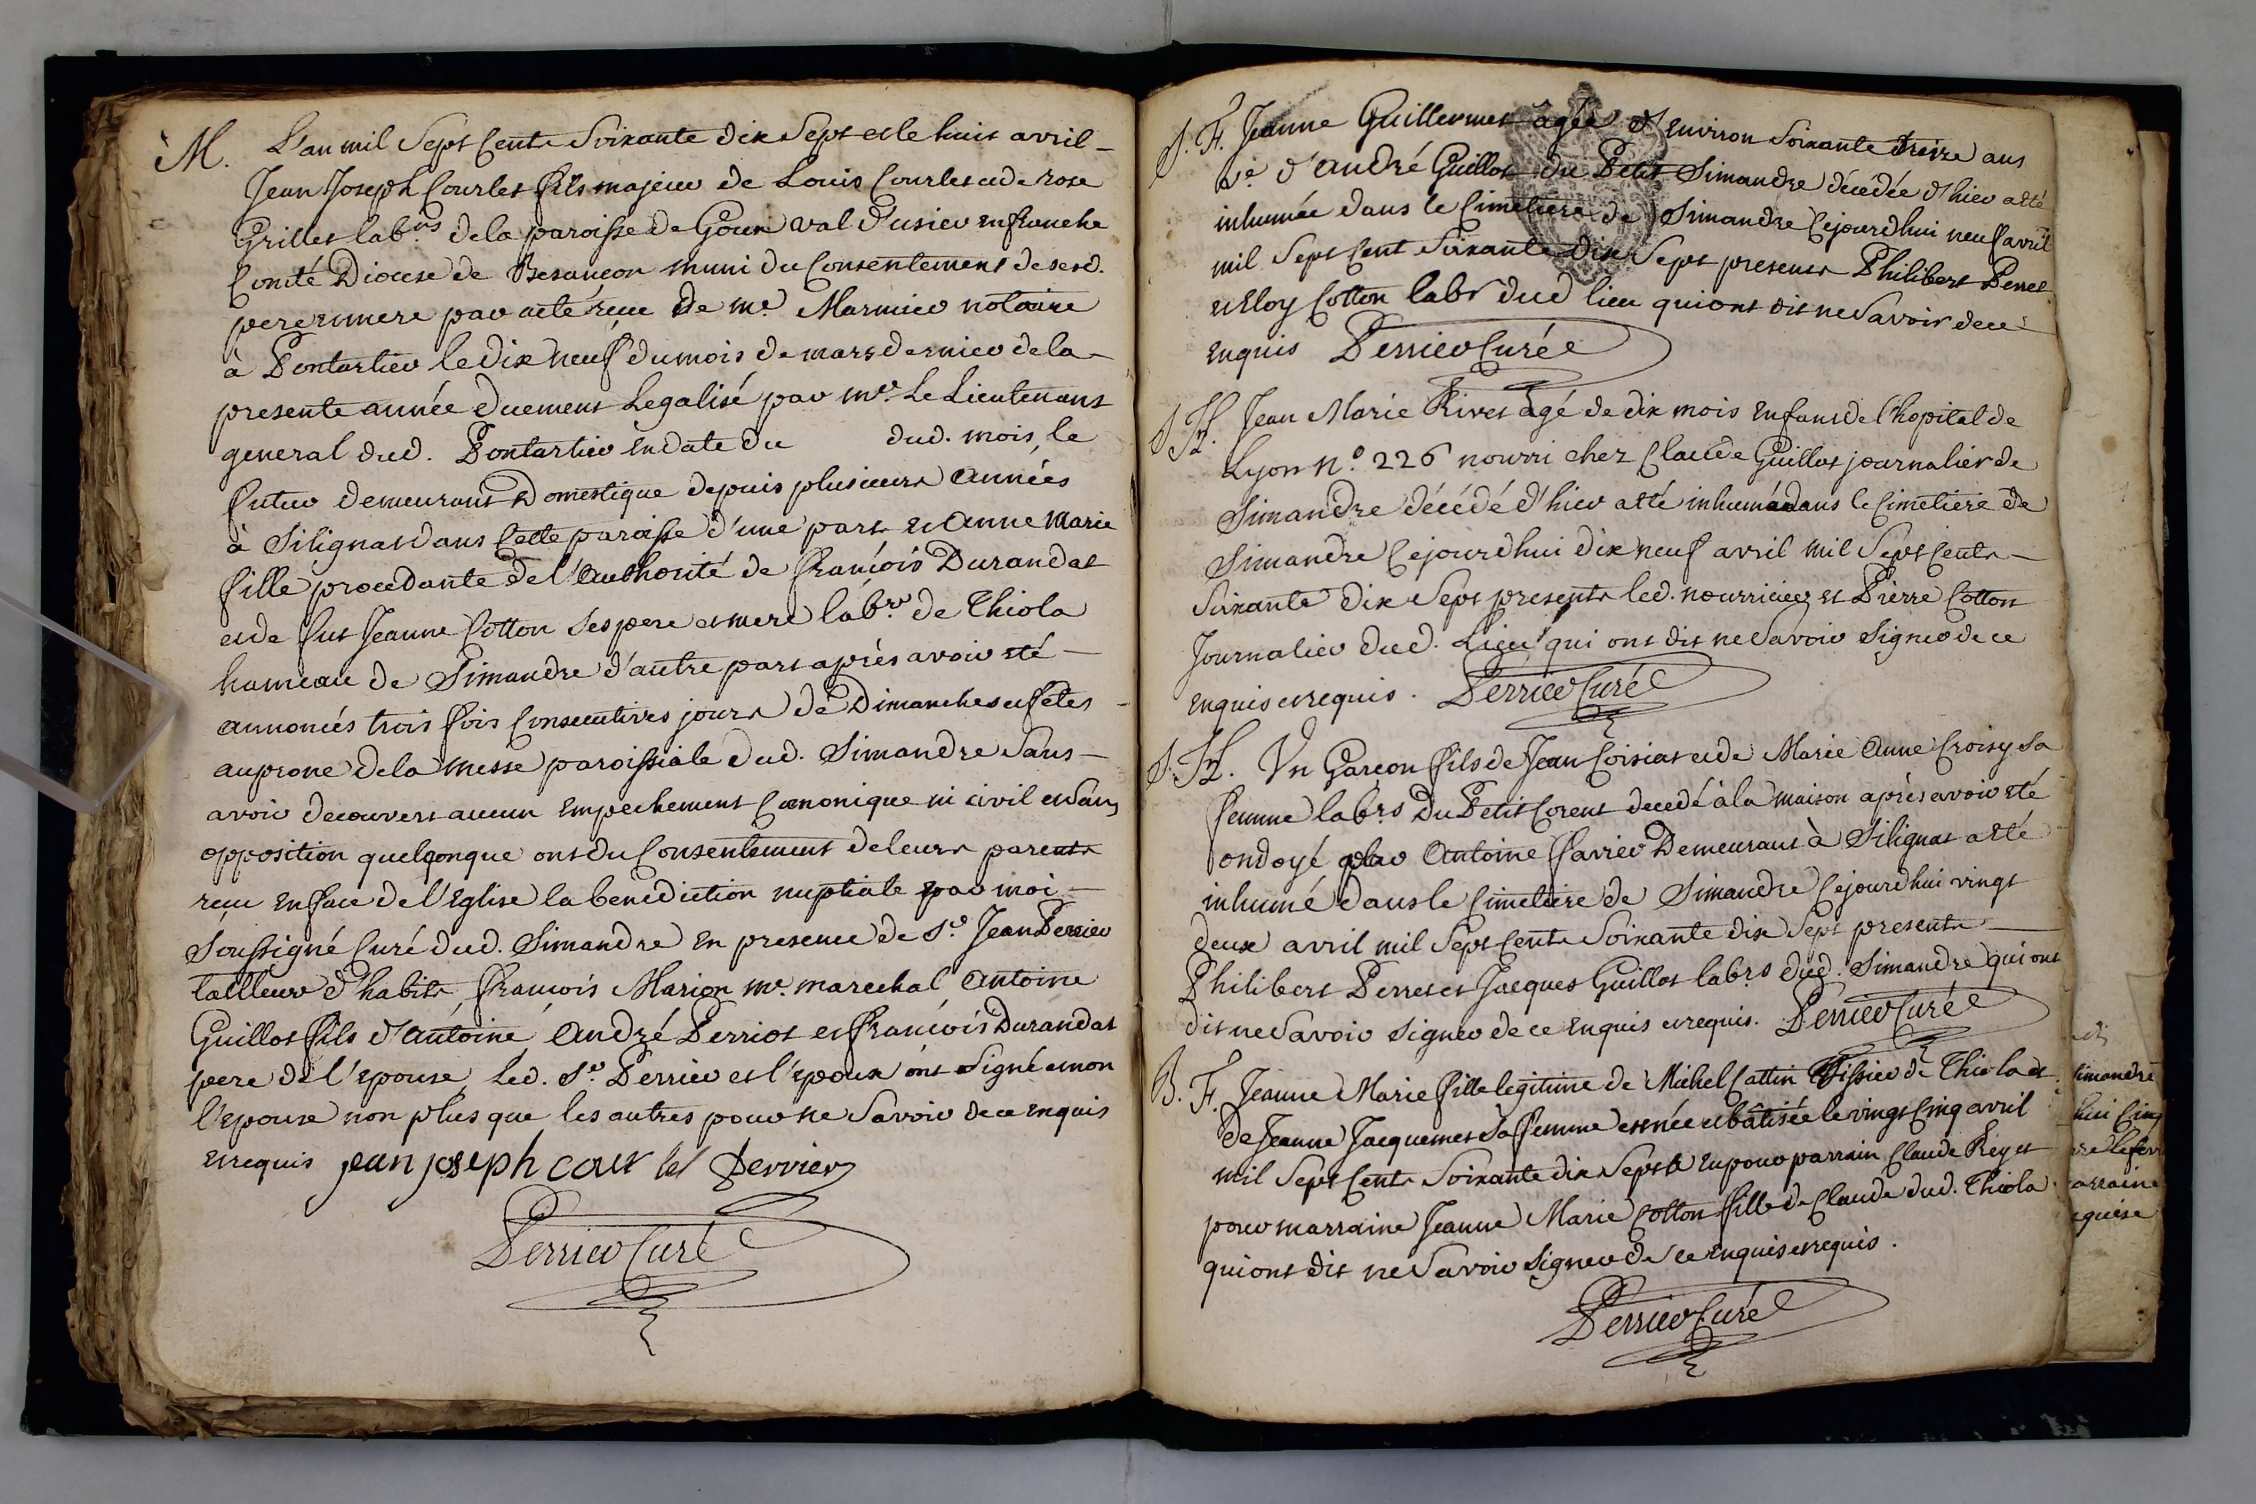 M. L'an mil Sept Cents Soixante dix Sept et le huit avril
Jean Joseph Courlet fils majeur de Louis Courlet et de rose
Grillet labrs dela paroisse de Goux val d'usier enfranche
Comté Diocese de Besancon muni du Consentement de sesd.
pere et mere par acte recue de me. Marmier notaire
à Pontarlier le dix neuf du mois de mars dernier de la
presente année duement Legalisé par mr. Le Lieutenant
general dud. Pontarlier en date du dud. mois, le
futur demeurant Domestique depuis plusieurs années
à Silignat dans Cette paroisse d'une part et Anne Marie
fille procedante de l'Authorité de francois Durandat
et de fut Jeanne Cotton ses pere et mere labrs de Thiola
hameau de Simandre d'autre part après avoir eté
annoncés trois fois Consecutives jours de Dimanches et fêtes
au prone de la messe paroissiale dud. Simandre Sans
avoir decouvert aucun Empechement Canonique ni civil et Sans
opposition quelqonque ont du Consentement de leurs parents
reçu enface de l'Eglise la benediction nuptiale par moi
Soussigné Curé dud. Simandre en presence de Sr. Jean Perrier
tailleur d'habits, francois Marion me. marechal Antoine
Guillot fils d'antoine André Perriot et francois Durandat
pere de l'epouse, Led. Sr. Perrier et l'epoux ont Signé et non
l'epouse non plus que les autres pour ne Savoir de ce enquis
et requis jean joseph cour let Perrier
Perrier Curé
S. F. Jeanne Guillermet agée d'Environ Soixante treize ans
ve d'André Guillot du Petit Simandre décédée d'hier a eté
inhumée dans le Cimetiere de Simandre Cejourdhui neuf avril
mil Sept Cent Soixante dix Sept presents Philibert Perret
et Eloy Cotton labr dud lieu qui ont dit ne Savoir de ce
enquis Perrier Curé
S. H. Jean Marie Rivet agé de dix mois enfant de l'hopital de
Lyon n°. 226 nourri chez Claude Guillot journalier de
Simandre décédé d'hier a eté inhumé dans le Cimetiere de
Simandre Cejourdhui dix neuf avril mil Sept Cents
Soixante dix Sept presents led. nourricier et Pierre Cotton
Journalier dud. Lieu qui ont dit ne Savoir Signer de ce
enquis et requis. Perrier Curé
S. H. Un Garcon fils de Jean Coisiat et de Marie Anne Croisy Sa
femme labrs du Petit Corent decedé à la maison après avoir eté
ondoyé par Antoine favier Demeurant à Silignat a eté
inhumé dans le Cimetiere de Simandre Cejourdhui vingt
deux avril mil Sept Cents Soixante dix Sept presents
Philibert Perret et Jacques Guillot labrs dud. Simandre qui ont
dit ne Savoir Signer de ce enquis et requis. Perrier Curé
B. F. Jeanne Marie fille legitime de Michel Cattin Tissier de Thiola et
de Jeanne Jacquemet Sa femme est née et bâtisée le vingt Cinq avril
mil Sept Cents Soixante dix Sept a eu pour parrain Claude Rey et
pour marraine Jeanne Marie Cotton fille de Claude dud. Thiola
qui ont dit ne Savoir Signer de ce enquis et requis.
Perrier Curé